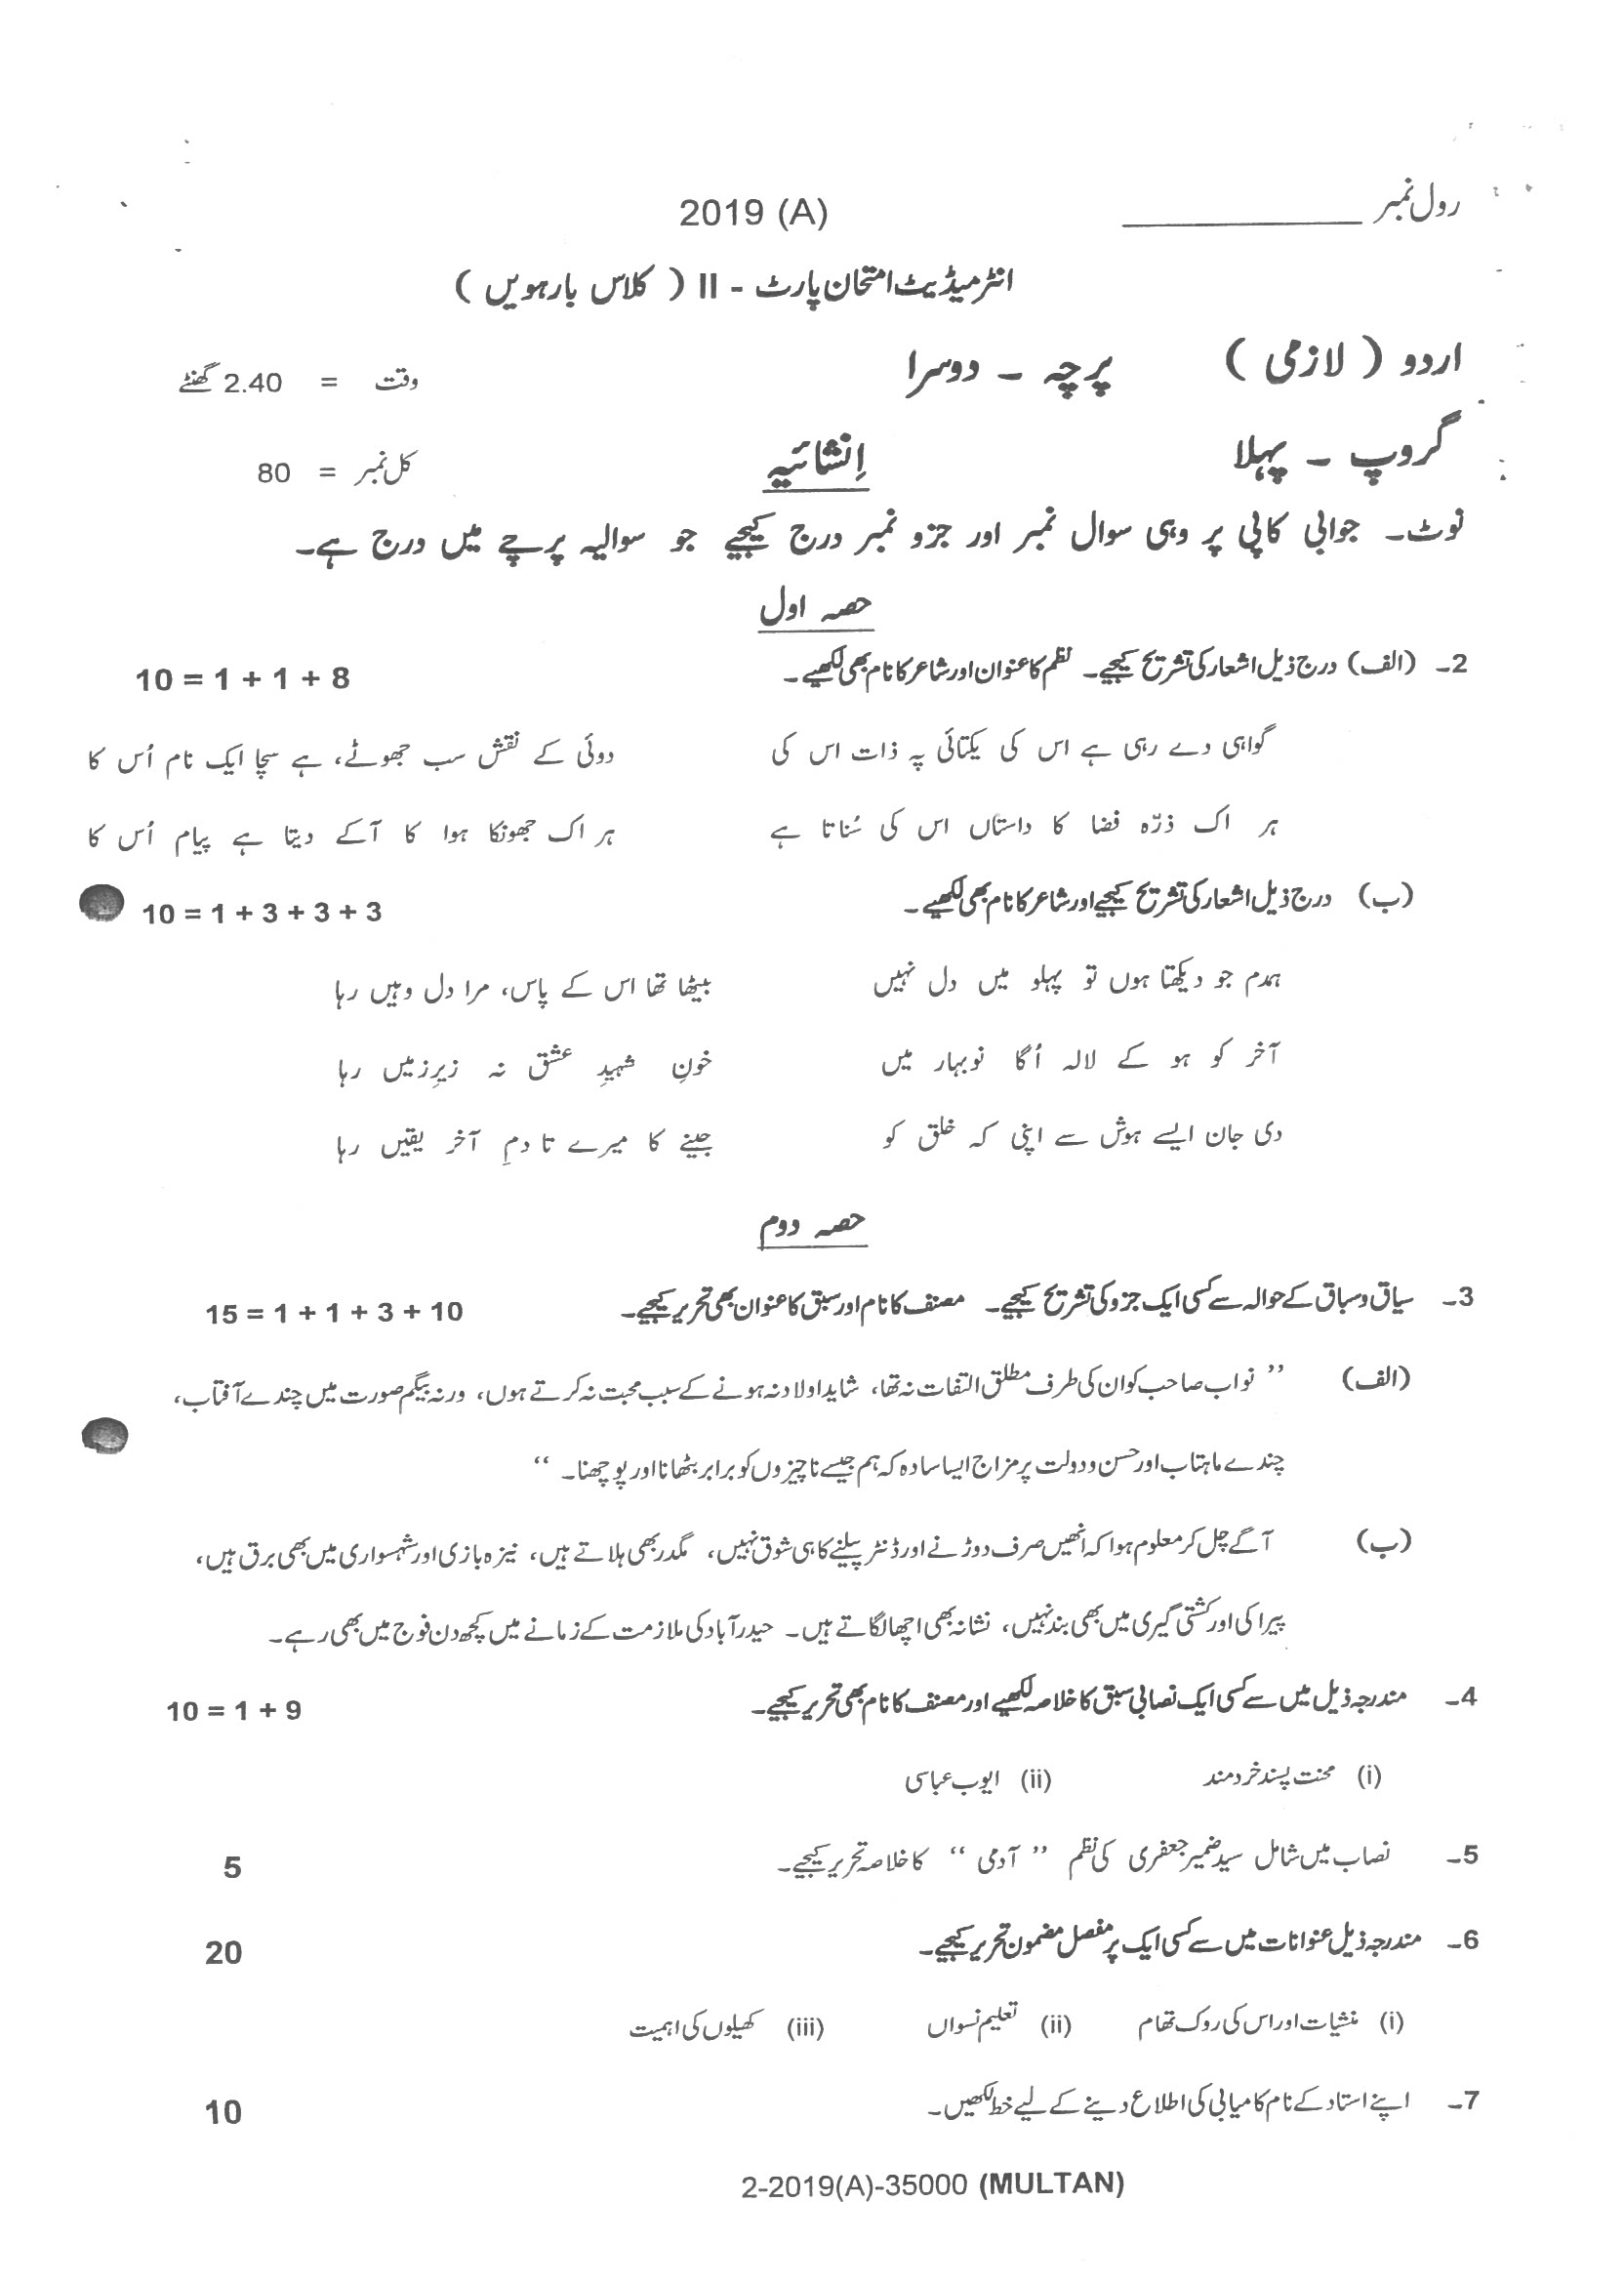 رول نمبر ____________
2019 (A)
انٹرمیڈیٹ امتحان پارٹ - II ( کلاس بارہویں )
اردو ( لازمی ) پرچہ - دوسرا وقت = 2.40 گھنٹے
گروپ - پہلا اِنشائیہ کل نمبر = 80
نوٹ۔ جوابی کاپی پر وہی سوال نمبر اور جزو نمبر درج کیجیے جو سوالیہ پرچے میں درج ہے۔
حصہ اول
2۔ (الف) درج ذیل اشعار کی تشریح کیجیے۔ نظم کا عنوان اور شاعر کا نام بھی لکھیے۔ 10 = 1 + 1 + 8
گواہی دے رہی ہے اس کی یکتائی پہ ذات اس کی دوئی کے نقش سب جھوٹے، ہے سچا ایک نام اُس کا
ہر اک ذرّہ فضا کا داستاں اس کی سُناتا ہے ہر اک جھونکا ہوا کا آکے دیتا ہے پیام اُس کا
(ب) درج ذیل اشعار کی تشریح کیجیے اور شاعر کا نام بھی لکھیے۔ 10 = 1 + 3 + 3 + 3
ہمدم جو دیکھتا ہوں تو پہلو میں دل نہیں بیٹھا تھا اس کے پاس، مرا دل وہیں رہا
آخر کو ہو کے لالہ اُگا نوبہار میں خونِ شہیدِ عشق نہ زیرِزمیں رہا
دی جان ایسے ہوش سے اپنی کہ خلق کو جینے کا میرے تا دمِ آخر یقیں رہا
حصہ دوم
3۔ سیاق و سباق کے حوالہ سے کسی ایک جزو کی تشریح کیجیے۔ مصنف کا نام اور سبق کا عنوان بھی تحریر کیجیے۔ 15 = 1 + 1 + 3 + 10
(الف) ’’ نواب صاحب کو ان کی طرف مطلق التفات نہ تھا، شاید اولاد نہ ہونے کے سبب محبت نہ کرتے ہوں، ورنہ بیگم صورت میں چندے آفتاب،
چندے ماہتاب اور حسن و دولت پر مزاج ایسا سادہ کہ ہم جیسے ناچیزوں کو برابر بٹھانا اور پوچھنا۔ ‘‘
(ب) آگے چل کر معلوم ہوا کہ انھیں صرف دوڑنے اور ڈنٹر پیلنے کا ہی شوق نہیں، مگدر بھی ہلاتے ہیں، نیزہ بازی اور شہسواری میں بھی برق ہیں،
پیراکی اور کشتی گیری میں بھی بند نہیں، نشانہ بھی اچھا لگاتے ہیں۔ حیدرآباد کی ملازمت کے زمانے میں کچھ دن فوج میں بھی رہے۔
4۔ مندرجہ ذیل میں سے کسی ایک نصابی سبق کا خلاصہ لکھیے اور مصنف کا نام بھی تحریر کیجیے۔ 10 = 1 + 9
(i) محنت پسند خردمند (ii) ایوب عباسی
5۔ نصاب میں شامل سید ضمیر جعفری کی نظم ’’ آدمی ‘‘ کا خلاصہ تحریر کیجیے۔ 5
6۔ مندرجہ ذیل عنوانات میں سے کسی ایک پر مفصل مضمون تحریر کیجیے۔ 20
(i) منشیات اور اس کی روک تھام (ii) تعلیم نسواں (iii) کھیلوں کی اہمیت
7۔ اپنے استاد کے نام کامیابی کی اطلاع دینے کے لیے خط لکھیں۔ 10
2-2019(A)-35000 (MULTAN)